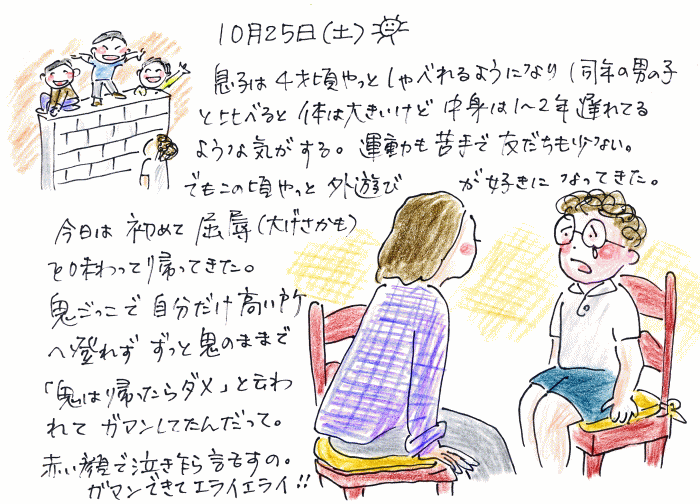 10月25日(土)
息子は4才頃やっとしゃべれるようになり同年の男の子
と比べると体は大きいけど中身は1〜2年遅れてる
ような気がする。運動も苦手で友だちも少ない。
でもこの頃やっと外遊びが好きになってきた。
今日は初めて屈辱(大げさかも)
を味わって帰ってきた。
鬼ごっこで自分だけ高い所
へ登れずずっと鬼のままで
「鬼は帰ったらダメ」と云わ
れてガマンしてたんだって。
赤い顔で泣き乍ら話すの。
ガマンできてエライエライ!!